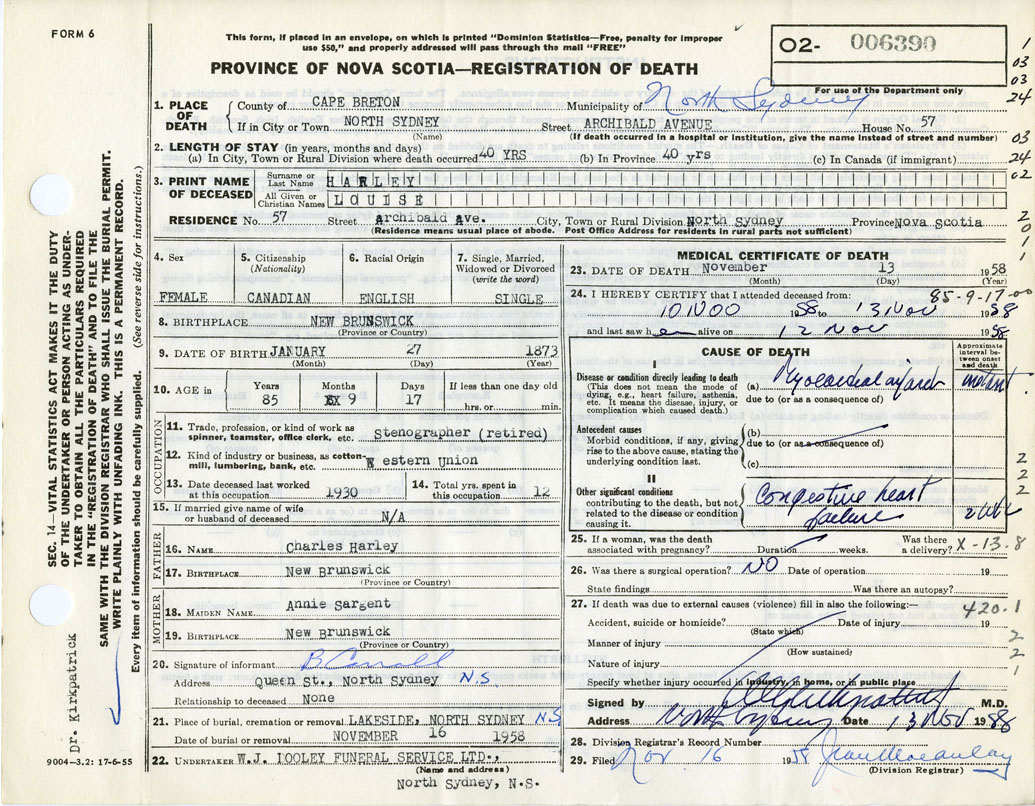 FORM 6
This form, if placed in an envelope, on which is printed "Dominion Statistics—Free, penalty for improper
use $50," and properly addressed will pass through the mail "FREE"
PROVINCE OF NOVA SCOTIA—REGISTRATION OF DEATH
O2- 006390
For use of the Department only
1. PLACE OF DEATH
County of CAPE BRETON Municipality of North Sydney
If in City or Town NORTH SYDNEY Street ARCHIBALD AVENUE House No. 57
(Name) (If death occurred in a hospital or institution, give the name instead of street and number)
2. LENGTH OF STAY (in years, months and days)
(a) In City, Town or Rural Division where death occurred 40 YRS (b) In Province 40 yrs (c) In Canada (if immigrant)
3. PRINT NAME OF DECEASED
Surname or Last Name HARLEY
All Given or Christian Names LOUISE
RESIDENCE No. 57 Street Archibald Ave. City, Town or Rural Division North Sydney Province Nova Scotia
(Residence means usual place of abode. Post Office Address for residents in rural parts not sufficient)
4. Sex
FEMALE
5. Citizenship
(Nationality)
CANADIAN
6. Racial Origin
ENGLISH
7. Single, Married,
Widowed or Divorced
(write the word)
SINGLE
8. BIRTHPLACE NEW BRUNSWICK
(Province or Country)
9. DATE OF BIRTH JANUARY 27 1873
(Month) (Day) (Year)
10. AGE in
Years Months Days If less than one day old
85 9 17 hrs. or min.
OCCUPATION
11. Trade, profession, or kind of work as
spinner, teamster, office clerk, etc. Stenographer (retired)
12. Kind of industry or business, as cotton-
mill, lumbering, bank, etc. W estern Union
13. Date deceased last worked
at this occupation 1930
14. Total yrs. spent in
this occupation 12
15. If married give name of wife
or husband of deceased N/A
FATHER
16. NAME Charles Harley
17. BIRTHPLACE New Brunswick
(Province or Country)
MOTHER
18. MAIDEN NAME Annie Sargent
19. BIRTHPLACE New Brunswick
(Province or Country)
20. Signature of informant B. Carroll
Address Queen St., North Sydney N.S.
Relationship to deceased None
21. Place of burial, cremation or removal LAKESIDE, NORTH SYDNEY NS
Date of burial or removal NOVEMBER 16 1958
22. UNDERTAKER W.J. IOOLEY FUNERAL SERVICE LTD.,
(Name and address)
North Sydney, N.S.
MEDICAL CERTIFICATE OF DEATH
23. DATE OF DEATH November 13 1958
(Month) (Day)
85-9-17-00
24. I HEREBY CERTIFY that I attended deceased from:
10 NOV 1958 to 13 Nov 1958
and last saw h er alive on 12 Nov 1958
CAUSE OF DEATH
Approximate
interval be-
tween onset
and death
I
Disease or condition directly leading to death
(This does not mean the mode of
dying, e.g., heart failure, asthenia,
etc. It means the disease, injury, or
complication which caused death.)
(a) Myocardial infarct instant
due to (or as a consequence of)
Antecedent causes
Morbid conditions, if any, giving
rise to the above cause, stating the
underlying condition last.
(b)
due to (or as a consequence of)
(c)
II
Other significant conditions
contributing to the death, but not
related to the disease or condition
causing it.
Congestive heart
failure
25. If a woman, was the death
associated with pregnancy? Duration weeks. Was there
a delivery? X-13-8
26. Was there a surgical operation? NO Date of operation 19
State findings Was there an autopsy?
27. If death was due to external causes (violence) fill in also the following:—
420-1
Accident, suicide or homicide? Date of injury 19
(State which)
Manner of injury
(How sustained)
Nature of injury
Specify whether injury occurred in industry, in home, or in public place
Signed by M.D.
Address North Sydney Date 13 Nov 1958
28. Division Registrar's Record Number
29. Filed Nov 16 1958 Jean Macaulay
(Division Registrar)
SEC. 14—VITAL STATISTICS ACT MAKES IT THE DUTY
OF THE UNDERTAKER OR PERSON ACTING AS UNDER-
TAKER TO OBTAIN ALL THE PARTICULARS REQUIRED
IN THE "REGISTRATION OF DEATH" AND TO FILE THE
SAME WITH THE DIVISION REGISTRAR WHO SHALL ISSUE THE BURIAL PERMIT.
WRITE PLAINLY WITH UNFADING INK. THIS IS A PERMANENT RECORD.
Every item of information should be carefully supplied. (See reverse side for instructions.)
Dr. Kirkpatrick
9004—3.2: 17-6-55
1
03
03
24
03
24
02
2
0
1
1
2
2
2
2
1